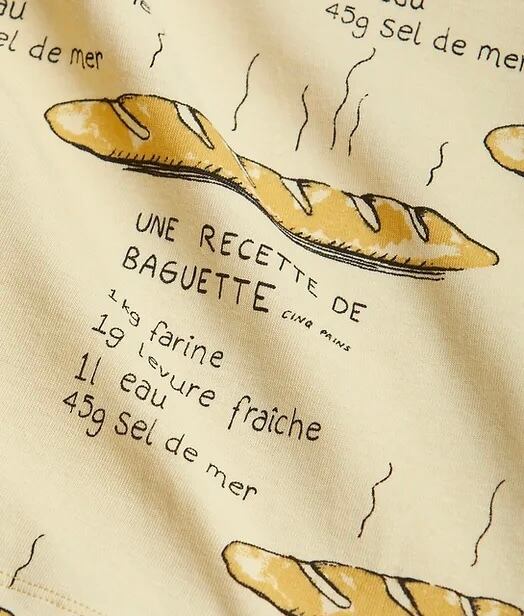 au
el de mer
eau
45g sel de mer
UNE RECETTE DE
BAGUETTE CINQ PAINS
1kg farine
1g levure fraîche
1l eau
45g sel de mer